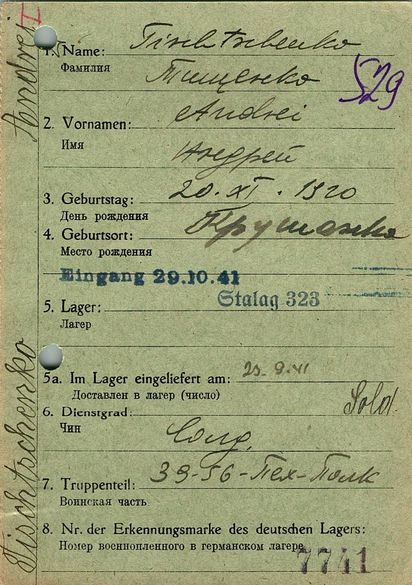 Tischtschenko Andrei
I
1. Name: Tischtschenko
Фамилия Тищенко
529
2. Vornamen: Andrei
Имя Андрей
3. Geburtstag: 20. XI. 1920
День рождения
4. Geburtsort:
Место рождения
Eingang 29.10.41
Stalag 323
5. Lager:
Лагер
5a. Im Lager eingeliefert am: 25.9.41
Доставлен в лагер (число)
6. Dienstgrad: Sold.
Чин Солд.
7. Truppenteil: 39-56-Пех-Полк
Воинская часть
8. Nr. der Erkennungsmarke des deutschen Lagers:
Номер военнопленного в германском лагере
7741